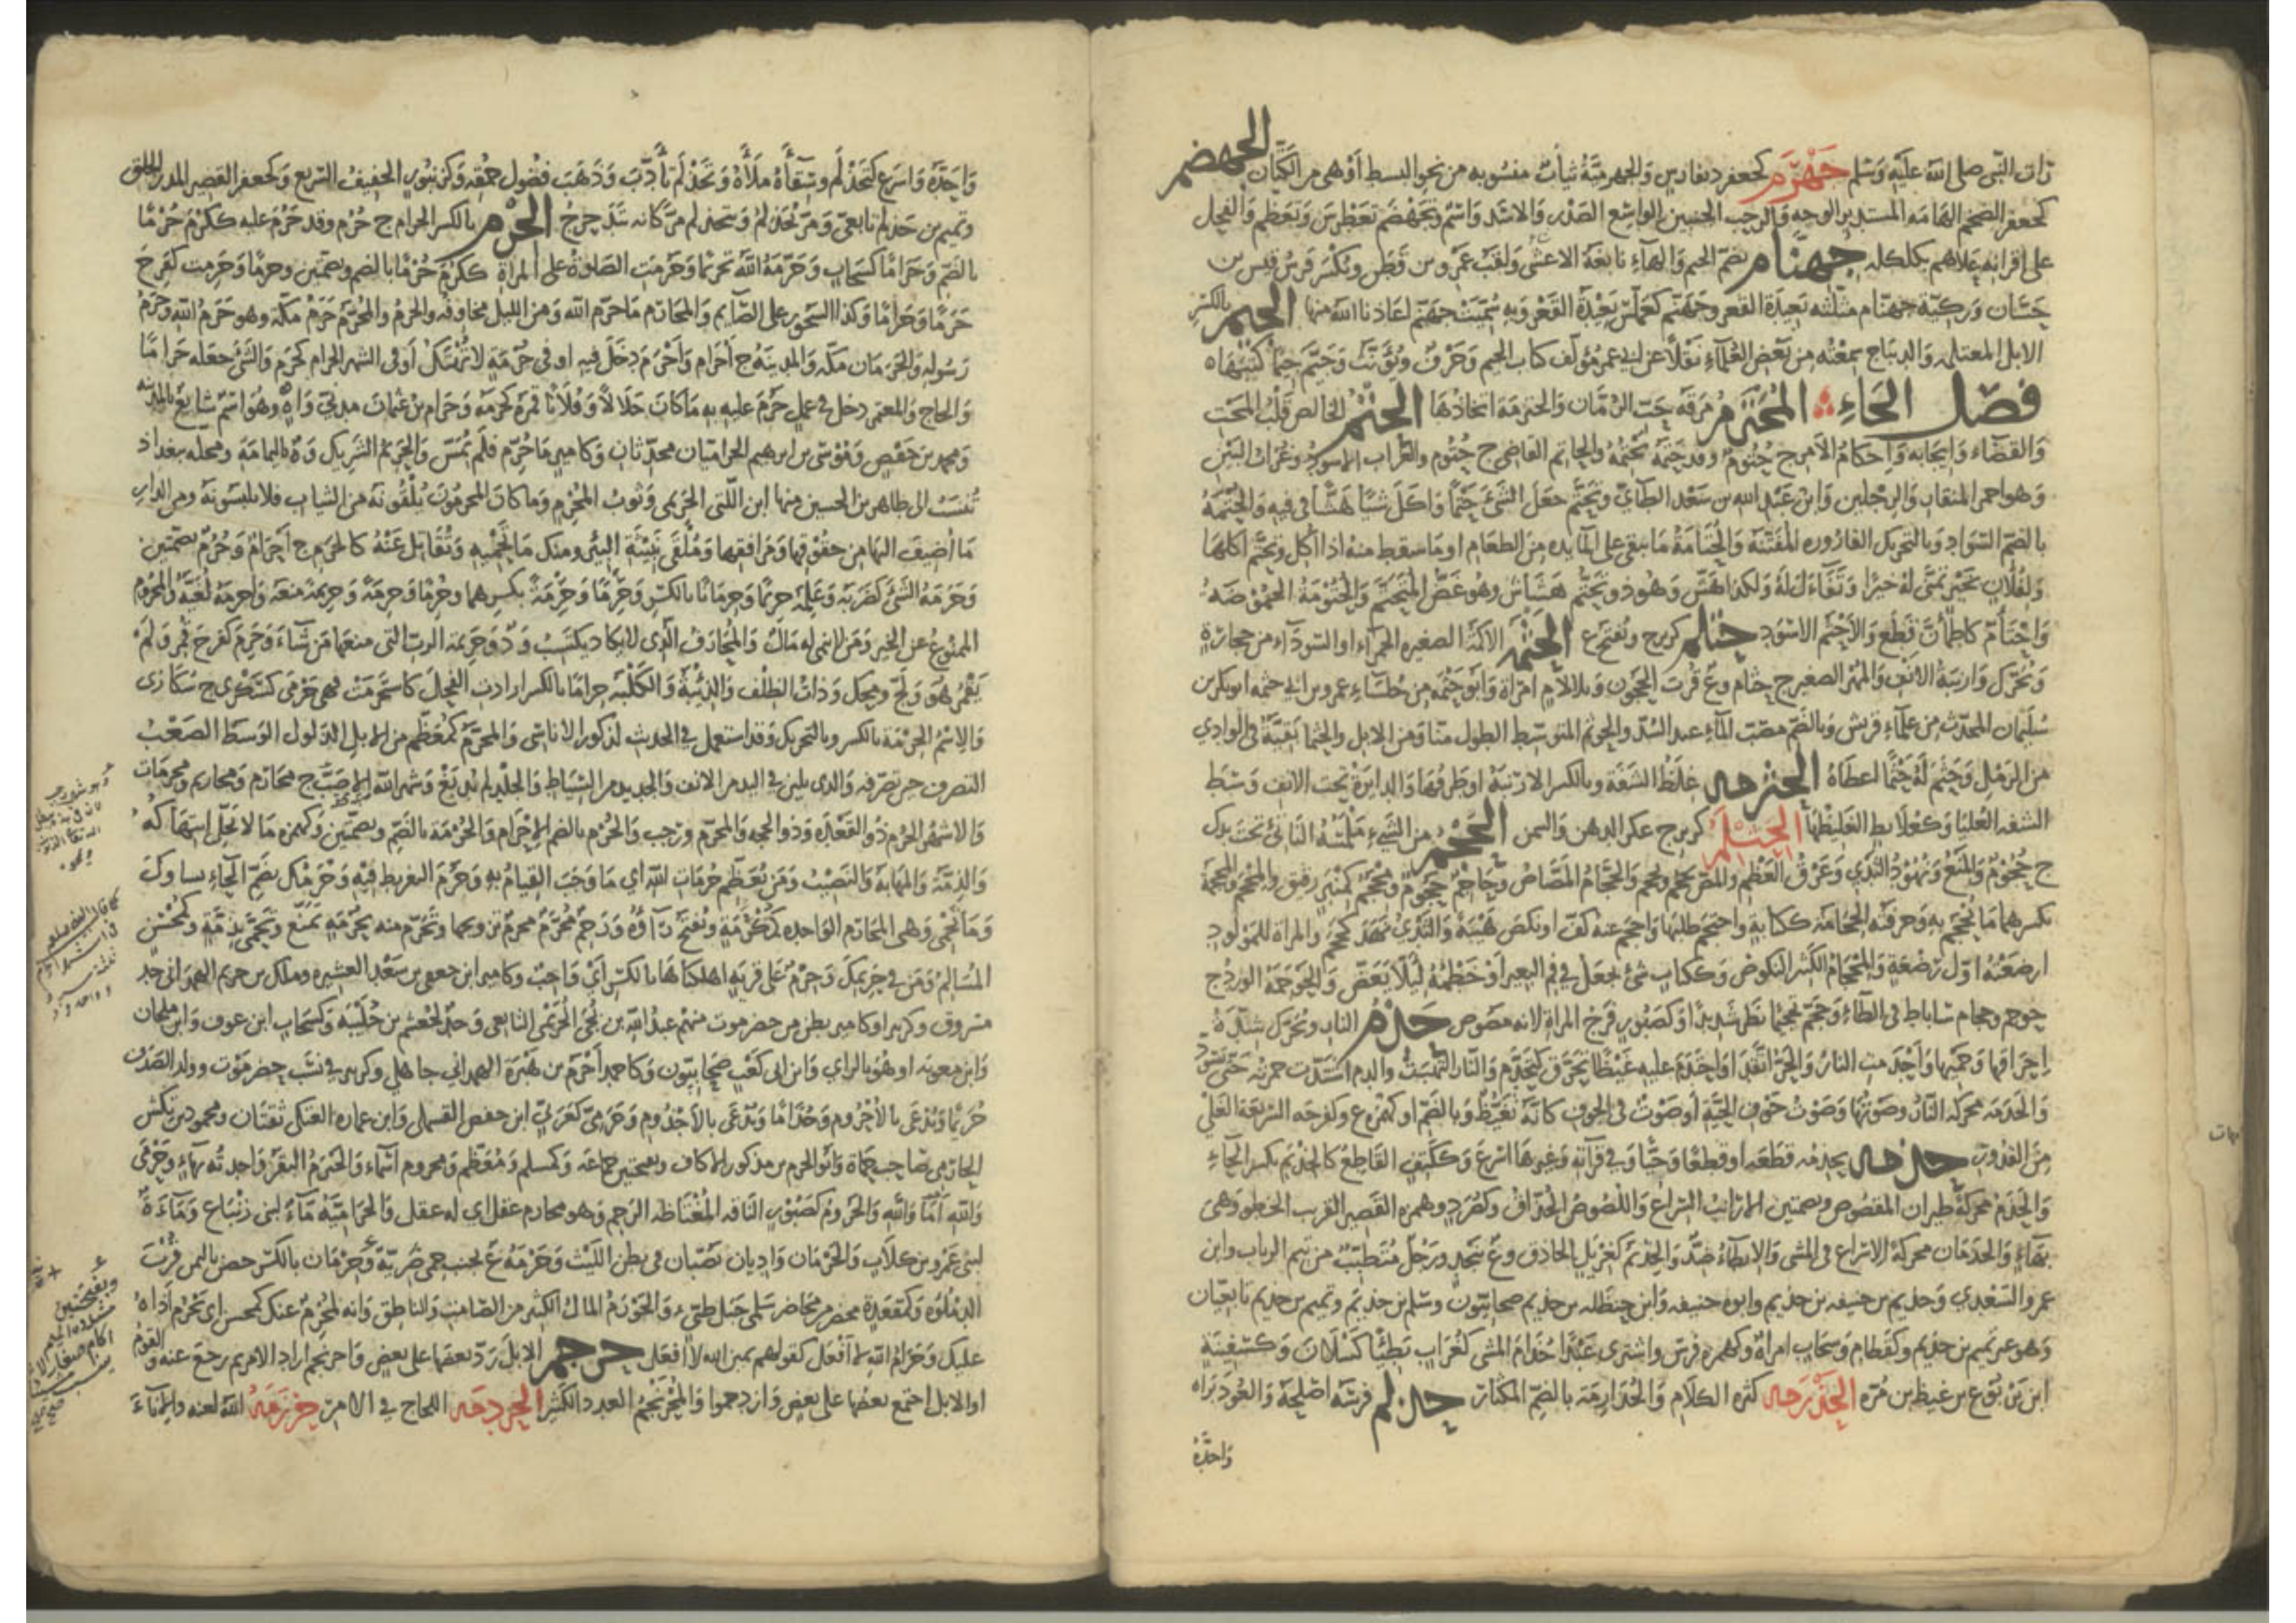 رأت النبي صلى الله عليه وسلم جَهْرَم كجعفر د بفارس والجهرمية ثياب منسوبة من نحو البسط أو هي من الكتان الجهضم
كجعفر الضخم الهامة المستدير الوجه والرحب الجنبين الواسع الصدر والاسد واسم وتجهضم تغطرس وتعظم والفحل
على اقرانه علاهم بكلكله جهنام بضم الجيم والهاء تابعة الاعشى ولقب عمرو بن قطن ويكسر فرس قيس بن
حسان وركية جهنام مثلثة بعيدة القعر وجهنم كعملس بعيدة القعر وبه سميت جهنم اعاذنا الله منها الجيم بالكسر
الابل المغتلمة والديباج سمعته من بعض العلماء نقلا عن ابي عمرو مؤلف كتاب الجيم وحرف ويؤنث وجيم جيما كتبها
فصل الحاء المحترم مرقة حب الرمان والحترمة اتخاذها الحتم الخالص قلب المحت
والقضاء وايجابه واحكام الامر ج حتوم وقد حتمه يحتمه والحاتم القاضي ج حتوم والغراب الاسود وغراب البين
وهو احمر المنقار والرجلين وابن عبد الله بن سعد الطائي وتحتم جعل الشيء حتما واكل شيئا هشا في فيه والحتمة
بالضم السواد وبالتحريك القارورة المفتتة والحتامة ما يبقى على المائدة من الطعام او ما سقط منه اذا اكل وتحتم اكلها
ولفلان بخير تمنى له خيرا وتفاءل له ولكذا هش وهو ذو تحتم هشاش وهو غض المتحتم والحتومة الحموضة
واحتأم كاطمأن قطع والاحتم الاسود حتلم كزبرج وتفتح ع الحثمة الاكمة الصغيرة الحمراء او السوداء من حجارة
وتحرك وارنبة الانف والمهر الصغير ج حثام وع قرب الحجون وبلا لام امراة وابو حثمة من جلساء عمر وبن ابي حثمة ابو بكر بن
سليمان المحدث من علماء قريش وبالضم مصب الماء عند السد والحوثم المتوسط الطول منا ومن الابل والحثما بقية في الوادي
من الرمل وحثم له حثما اعطاه الحثرمة غلظ الشفة وبالكسر الارنبة او طرفها والدايرة تحت الانف وسط
الشفة العليا وكعلابط الغليظها الحثلم كزبرج عكر الدهن والسمن الحجم من الشيء ملمسه الناتئ تحت يدك
ج حجوم والمنع ونهود الثدي وعرق العظم والمص يحجم ويحجم والحجام المصاص وحاجم حجوم ومحجم كمنبر رفيق والمحجم والمحجمة
بكسرهما ما يحجم به وحرفته الحجامة ككتابة واحتجم طلبها واحجم عنه كف او نكص هيبة والثدي نهد كحجم والمراة للمولود
ارضعته اول رضعة والمحجام الكثير النكوص وككتاب شئ يجعل في فم البعير او خطمه ليلا يعض والحوجمة الورد ج
حوجم وحجام ساباط في الطاء وحجم تحجيما نظر شديدا وكصبور فرج المراة لانه مصوص حدم النار ويحرك شدة
احراقها وحميها واحدمت النار والحر اتقد او احتدم عليه غيظا تحرق كتحدم والنار التهبت والدم اشتدت حمرته حتى يسود
والحدمة محركة النار وصوتها وصوت جوف الحية او صوت في الجوف كانه تغيظ وبالضم او كهمزة ع وكفرحة السريعة الغلي
من القدور حذمه يحذمه قطعه او قطعا وحيا وفي قرآته وغيرها اسرع وككتف القاطع كالحذيم بكسر الحاء
والحذم محركة طيران المقصوص وبضمتين الارانب السراع واللصوص الحذاق وكصرد وهمزة القصير القريب الخطو وهي
بهاء والحذمان محركة الاسراع في المشي والابطاء ضد والحذيم كغزيل الحاذق وع بنجد ورجل متطبب من تيم الرباب وابن
عمرو السعدي وحذيم بن حنيفة بن حذيم وابوه حنيفة وابن حنظلة بن حذيم صحابيون وسلم بن حذيم وتميم بن حذيم تابعيان
وهو غير تميم بن حذيم وكقطام وسحاب امراة وكهمزة فرس واشترى عبدا حذام المشى كغراب بطيئا كسلان وكسفينة
ابن يربوع بن غيظ بن مرة الحذرمة كثرة الكلام والحذارمة بالضم المكثار حذلم فرسه اصلحه والعود براه
واحده
واحده واسرع كتحذلم وسقاءه ملأه وتحذلم تأدب وذهب فضول حمقه وكزنبور الخفيف السريع وكجعفر القصير الملزز الخلق
وتميم بن حذلم تابعي ومر يحذلم ويتحذلم مر كانه يتدحرج الحرم بالكسر الحرام ج حرم وقد حرم عليه ككرم حرما
بالضم وحراما كسحاب وحرمه الله تحريما وحرمت الصلوة على المراة ككرم حرما بالضم وبضمتين وحرما وحرمت كفرح
حرما وحراما وكذا السحور على الصائم والمحارم ما حرم الله ومن الليل مخاوفه والحرم والمحرم حرم مكة وهو حرم الله وحرم
رسوله والحرمان مكة والمدينة ج احرام واحرم دخل فيه او في حرمة لا تهتك او في الشهر الحرام كحرم والشئ جعله حراما
والحاج والمعتمر دخل في عمل حرم عليه به ما كان حلالا وفلانا قمره كحرمه وحرام بن عثمان مدني واه وهو اسم شايع بالمدينة
ومحمد بن حفص وموسى بن ابرهيم الحراميان محدثان وكامير ما حرم فلم يمس والحريم الشريك وة باليمامة ومحله ببغداد
تنسب الى طاهر بن الحسين منها ابن اللتى الحريمى وثوب المحرم وما كان المحرمون يلقونه من الثياب فلا يلبسونه ومن الدار
ما اضيف اليها من حقوقها ومرافقها وملقى نبيثة البئر ومنك ما تحميه وتقاتل عنه كالحرم ج احرام وحرم بضمتين
وحرمه الشئ كضربه وعلمه حريما وحرمانا بالكسر وحرما وحرمة بكسرهما وحرما وحرمة وحريمة منعه واحرمه لغية والمحروم
الممنوع عن الخير ومن لا ينمى له مال والمحارف الذى لا يكاد يكتسب ود وحريمة الرب التى منعها من شاء وحرم كفرح قمر ولم
يقمر هو ولج ومحك وذات الظلف والذئبة والكلبة حراما بالكسر ارادت الفحل كاستحرمت فهى حرمى كسكرى ج سكارى
والاسم الحرمة بالكسر وبالتحريك وقد استعمل في الحديث لذكور الاناسى والمحرم كمعظم من الابل الذلول الوسط الصعب
التصرف حين تصرفه والذى يلين في اليد من الانف والجديد من السياط والجلد لم يدبغ وشهر الله الاصب ج محارم ومحاريم ومحرمات
والاشهر الحرم ذو القعدة وذو الحجة والمحرم ورجب والحرم بالضم الاحرام والحرمة بالضم وبضمتين وكهمزة ما لا يحل انتهاكه
والذمة والمهابة والنصيب ومن يعظم حرمات الله اى ما وجب القيام به وحرم التفريط فيه وحرمك بضم الحاء نساوك
وما تحمى وهى المحارم الواحدة كمكرمة وتفتح راؤه ورحم محرم محرم تزوجها وتحرم منه بحرمة تمنع وتحمى بذمة وكمحسن
المسالم ومن في حريمك وحرم على قرية اهلكناها بالكسر اى واجب وكامير ابن جعفى بن سعد العشيرة ومالك بن حريم الهمدانى جد
مسروق وكزبير او كامير بطن من حضرموت منهم عبد الله بن نجى الحريمى التابعى وجد لجعشم بن خليبة وكسحاب ابن عوف وابن ملحان
وابن معوية او هو بالزاي وابن ابى كعب صحابيون وكاحمد احرم بن هبرة الهمداني جاهلي وكزبير في نسب حضرموت وولد الصدف
حريما ويدعى بالاحروم وجذاما ويدعى بالاجذوم وحرمى كعربى ابن حفص القسملى وابن عمارة العتكى ثقتان ومحمود بن تكش
الحارمى صاحب حماة وابو الحرم بن مذكور الاكاف وبضمتين جماعة وكمسلم ومعظم ومحروم اسماء والحيرم البقر واحدته بهاء وحرمى
والله اما والله والحروم كصبور الناقة المغتاظة الرحم وهو محارم عقل اى له عقل والحرامية ماء لبنى زنباع وماءة
لبنى عمرو بن كلاب والحرمان واديان يصبان في بطن الليث وحرمة ع لجنب حمى ضرية وحرمان بالكسر حصن باليمن قرب
الدملوة وكمقعدة محضر من محاضر سلمى جبل طيء والحورم المال الكثير من الصامت والناطق وانه لمحرم عنك كمحسن اى تحرم اذاه
عليك وحرام الله لا افعل كقولهم يمين الله لا افعل حرجم الابل رد بعضها على بعض واحرنجم اراد الامر ثم رجع عنه والقوم
او الابل اجتمع بعضها على بعض وازدحموا والمحرنجم العدد الكثير الحردمة اللجاج في الامر حرزمه الله لعنه والاناء